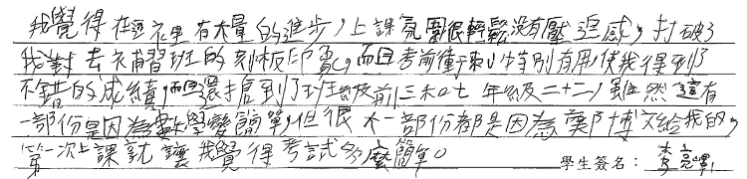 我覺得在這裡有大量的進步,上課氛圍很輕鬆沒有壓迫感,打破了
我對去補習班的刻板印象,而且考前衝刺特別有用,使我得到了
不錯的成績,而且還搶到了班級前三和七年級二十二,雖然這有
一部份是因為數學變簡單,但很大一部份都是因為 博文給我的,
第一次上課就讓我覺得考試多麼簡單。 學生簽名: 李